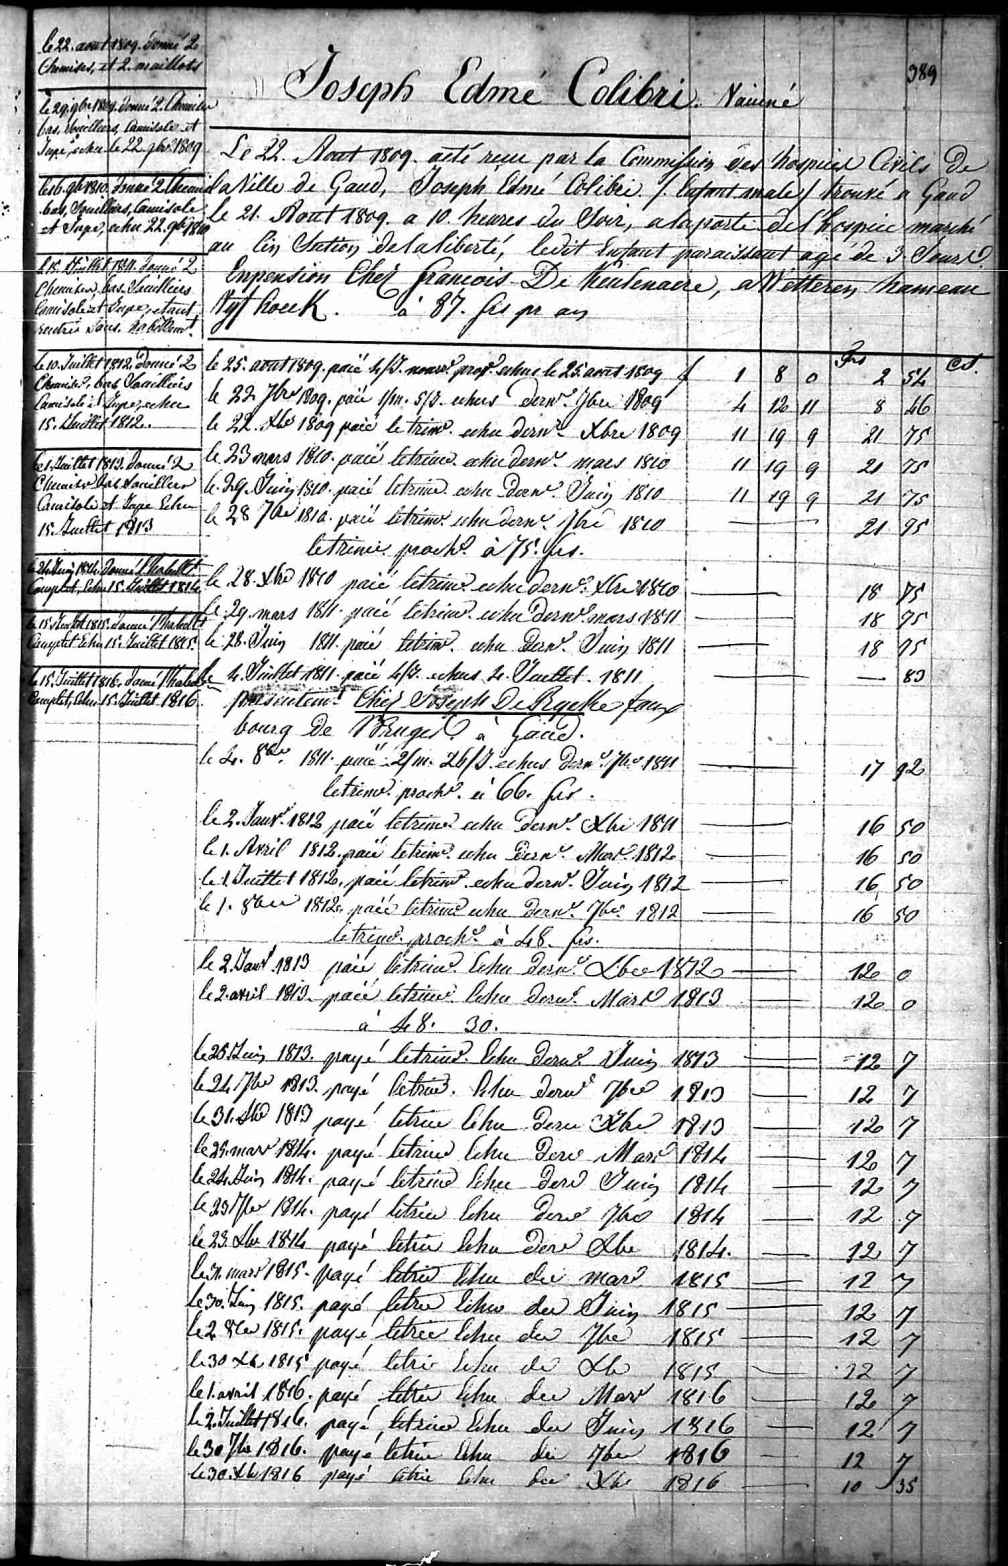 389
Joseph Edmé Colibri. Vaciné
Le 22. Aout 1809. acté reçu par la Commission des hospices Civils de
la Ville de Gand, Joseph Edmé Colibri. / Enfant male / trouvé a Gand
le 21. Aout 1809. a 10. heures du Soir, a la porte de l'hospice marché
au lin Section de la liberté, ledit Enfant paraissant agé de 3 Jours.
En pension Chez francois De Keukenaere, a Wetteren hameau
hoeck. à 87. frs pr an
le 22. aout 1809. donné 2
Chemises, et 2. maillots
le 29. 9bre 1809. donné 2. Chemises
bas, Souilliers, Camisole et
Jupe, echu le 22. 9bre 1809
le 16. 9bre 1810. donné 2 Chemises
bas, Souilliers, Camisole
et Jupe, echu 22. 9bre 1810
Le 15. Juillet 1811. donné 2
Chemises, bas, Souilliers
Camisole et Jupe, etant
le 10. Juillet 1812. Donné 2
Chemises, bas Souilliers
Camisole et Jupe, echu
15. Juillet 1812.
le 1. Juillet 1813. donné 2
Chemises bas souilliers
Camisole et Jupe Echu
15. Juillet 1813
le 24 Juin 1814. donné 1 habillt
Complet, Echu 15. Juillet 1814
le 15. Juillet 1815. donné 1 habillt
Complet Echu 15. Juillet 1815.
le 15. Juillet 1816. donné 1 habillt
Complet, Echu 15. Juillet 1816.
frs ct.
le 25. aout 1809. paié 4/J. nourre prove echus le 25 aout 1809 f 1 8 0 2 54
le 22. 7bre 1809. paié 1/m. 5/J. echus derne 7bre 1809 4 12 11 8 46
le 22. Xbre 1809 paié le trime echu derne Xbre 1809 11 19 9 21 75
le 23 mars 1810. paié le trime echu derne mars 1810 11 19 9 21 75
le 29. Juin 1810. paié le trime echu derne Juin 1810 11 19 9 21 75
le 28 7bre 1810. paié le trime echu derne 7bre 1810 — 21 75
le trime proche à 75. frs.
le 28. Xbre 1810 paié le trime echu derne Xbre 1810 — 18 75
le 29. mars 1811. paié le trime echu derne mars 1811 — 18 75
le 28. Juin 1811. paié le trime echu derne Juin 1811 — 18 75
le 4. Juillet 1811. paié 4/J. echus 4. Juillet. 1811 — — 83
presentemt Chez Joseph De Rycke faux
bourg de Bruges à Gand.
le 4. 8bre 1811. paié 2/m. 26/J. echus derne 7bre 1811 — 17 92
le trime proche à 66. frs.
le 2. Janvr 1812 paié le trime echu derne Xbre 1811 — 16 50
le 1. Avril 1812. paié le trime echu derne Mars 1812 — 16 50
le 1 Juillet 1812. paié le trime echu derne Juin 1812 — 16 50
le 1. 8bre 1812. paié le trime echu derne 7bre 1812 — 16 50
le trime proche à 48. frs.
le 2. Janr 1813 paié le trime Echu derne Xbre 1812 — 12 0
le 2. avril 1813. paié le trime Echu derne Mars 1813 — 12 0
à 48. 30.
le 25 Juin 1813. payé le trime Echu derne Juin 1813 — 12 7
le 24 7bre 1813. payé le trime Echu derne 7bre 1813 — 12 7
le 31. Xbre 1813 payé le trime Echu derne Xbre 1813 — 12 7
le 29. mars 1814. payé le trime Echu dere Mars 1814 — 12 7
le 24 Juin 1814. payé le trime Echu dere Juin 1814 — 12 7
le 23 7bre 1814. payé le trime Echu dere 7bre 1814 — 12 7
le 23. Xbre 1814 payé le trime Echu dere Xbre 1814. — 12 7
le 31. mars 1815. payé le trie Echu der mars 1815 — 12 7
le 30. Juin 1815. payé le trie Echu der Juin 1815 — 12 7
le 2 8bre 1815. payé le trie Echu der 7bre 1815 — 12 7
le 30 Xbre 1815 payé le trie Echu de Xbre 1815 — 22 7
le 1. avril 1816. payé le trie Echu der Mars 1816 — 12 7
le 2. Juillet 1816. payé le trime Echu der Juin 1816 — 12 7
le 30 7bre 1816. payé le trie Echu de 7bre 1816 — 12 7
le 30. Xbre 1816 payé le trie Echu der Xbre 1816 — 10 35